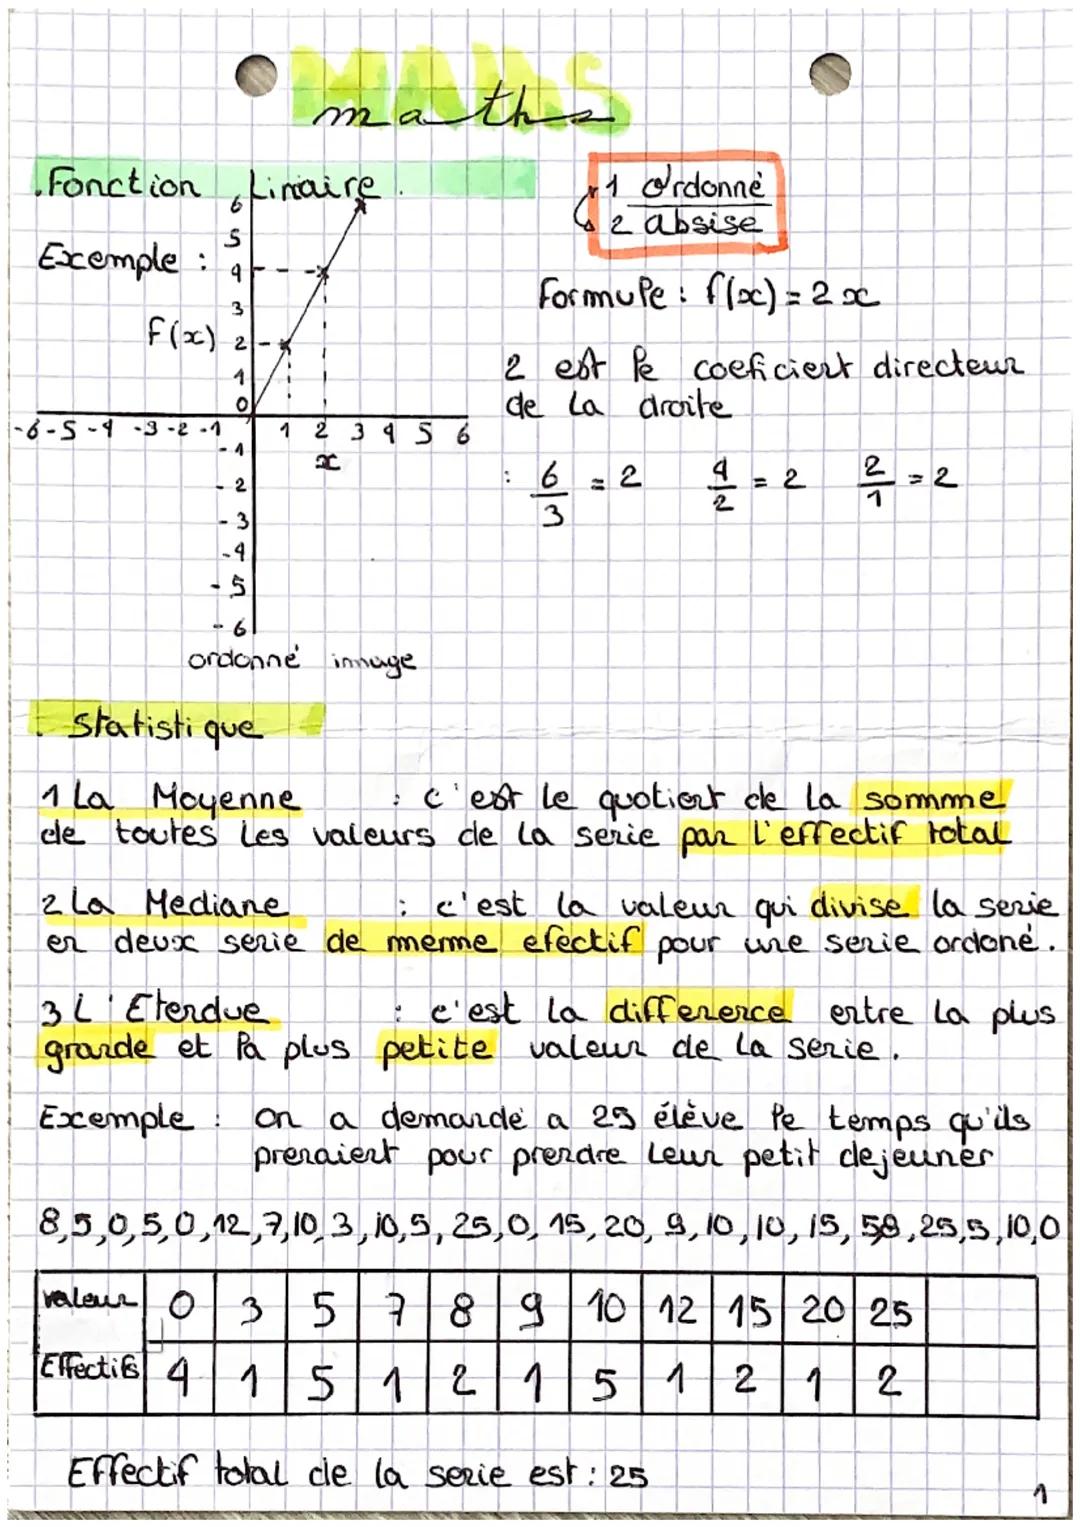 MATHS
maths
. Fonction Linaire .
1 Ordonné
2 absise
Excemple :
f(x)
6
5
4
3
2
1
0
-6 -5 -4 -3 -2 -1 1 2 3 4 5 6
x
-1
-2
-3
-4
-5
-6
ordonné immage
Formule : f(x) = 2x
2 est le coeficient directeur
de la droite
: 6/3 = 2 4/2 = 2 2/1 = 2
. Statistique
1 La Moyenne : c'est le quotient de la sommme
de toutes les valeurs de la serie par l'effectif total
2 La Mediane : c'est la valeur qui divise la serie
en deux serie de meme efectif pour une serie ordoné.
3 L'Etendue : c'est la difference entre la plus
grande et la plus petite valeur de la serie.
Excemple : on a demandé a 25 élève le temps qu'ils
prenaient pour prendre leur petit dejeuner
8,5,0,5,0,12,7,10,3,10,5,25,0,15,20,9,10,10,15,58,25,5,10,0
valeur 0 3 5 7 8 9 10 12 15 20 25
Effectifs 4 1 5 1 2 1 5 1 2 1 2
Effectif total de la serie est : 25
1